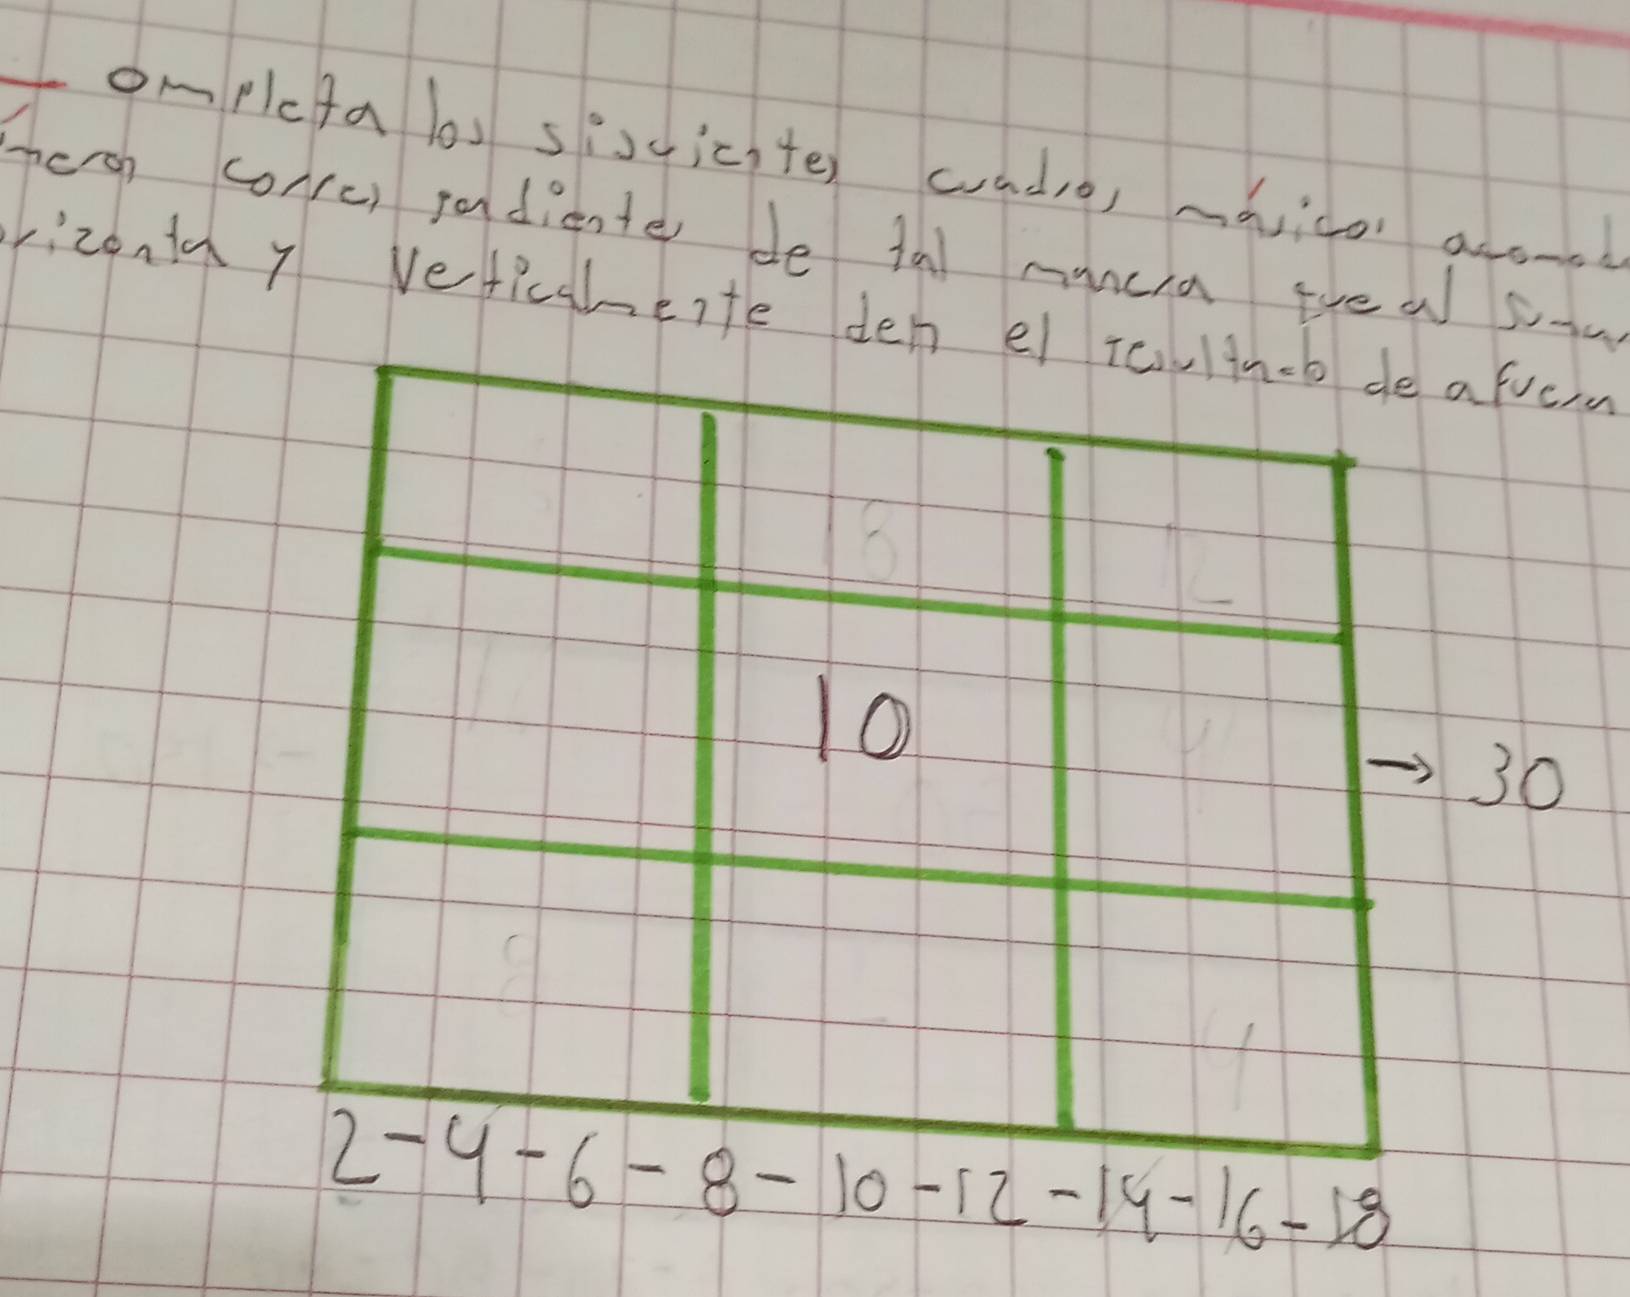 ompleta los siguientes cuadros mágicos acomod
mero correspondiente de tal manera que al suma
orizonta y Verticalmente den el resultado de afuera
18 12
10 → 30
8
2-4-6-8-10-12-14-16-18